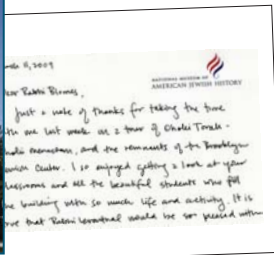 5, 2009
NATIONAL MUSEUM OF
AMERICAN JEWISH HISTORY
Rabbi
Just a note of thanks for taking the time
one last week on a tour of Oholei Torah-
and the remnants of the Brooklyn
Center. I so enjoyed getting a look at your
classrooms and all the beautiful students who fill
building with so much life and activity. It is
that Rabbi Levinthal would be so pleased with